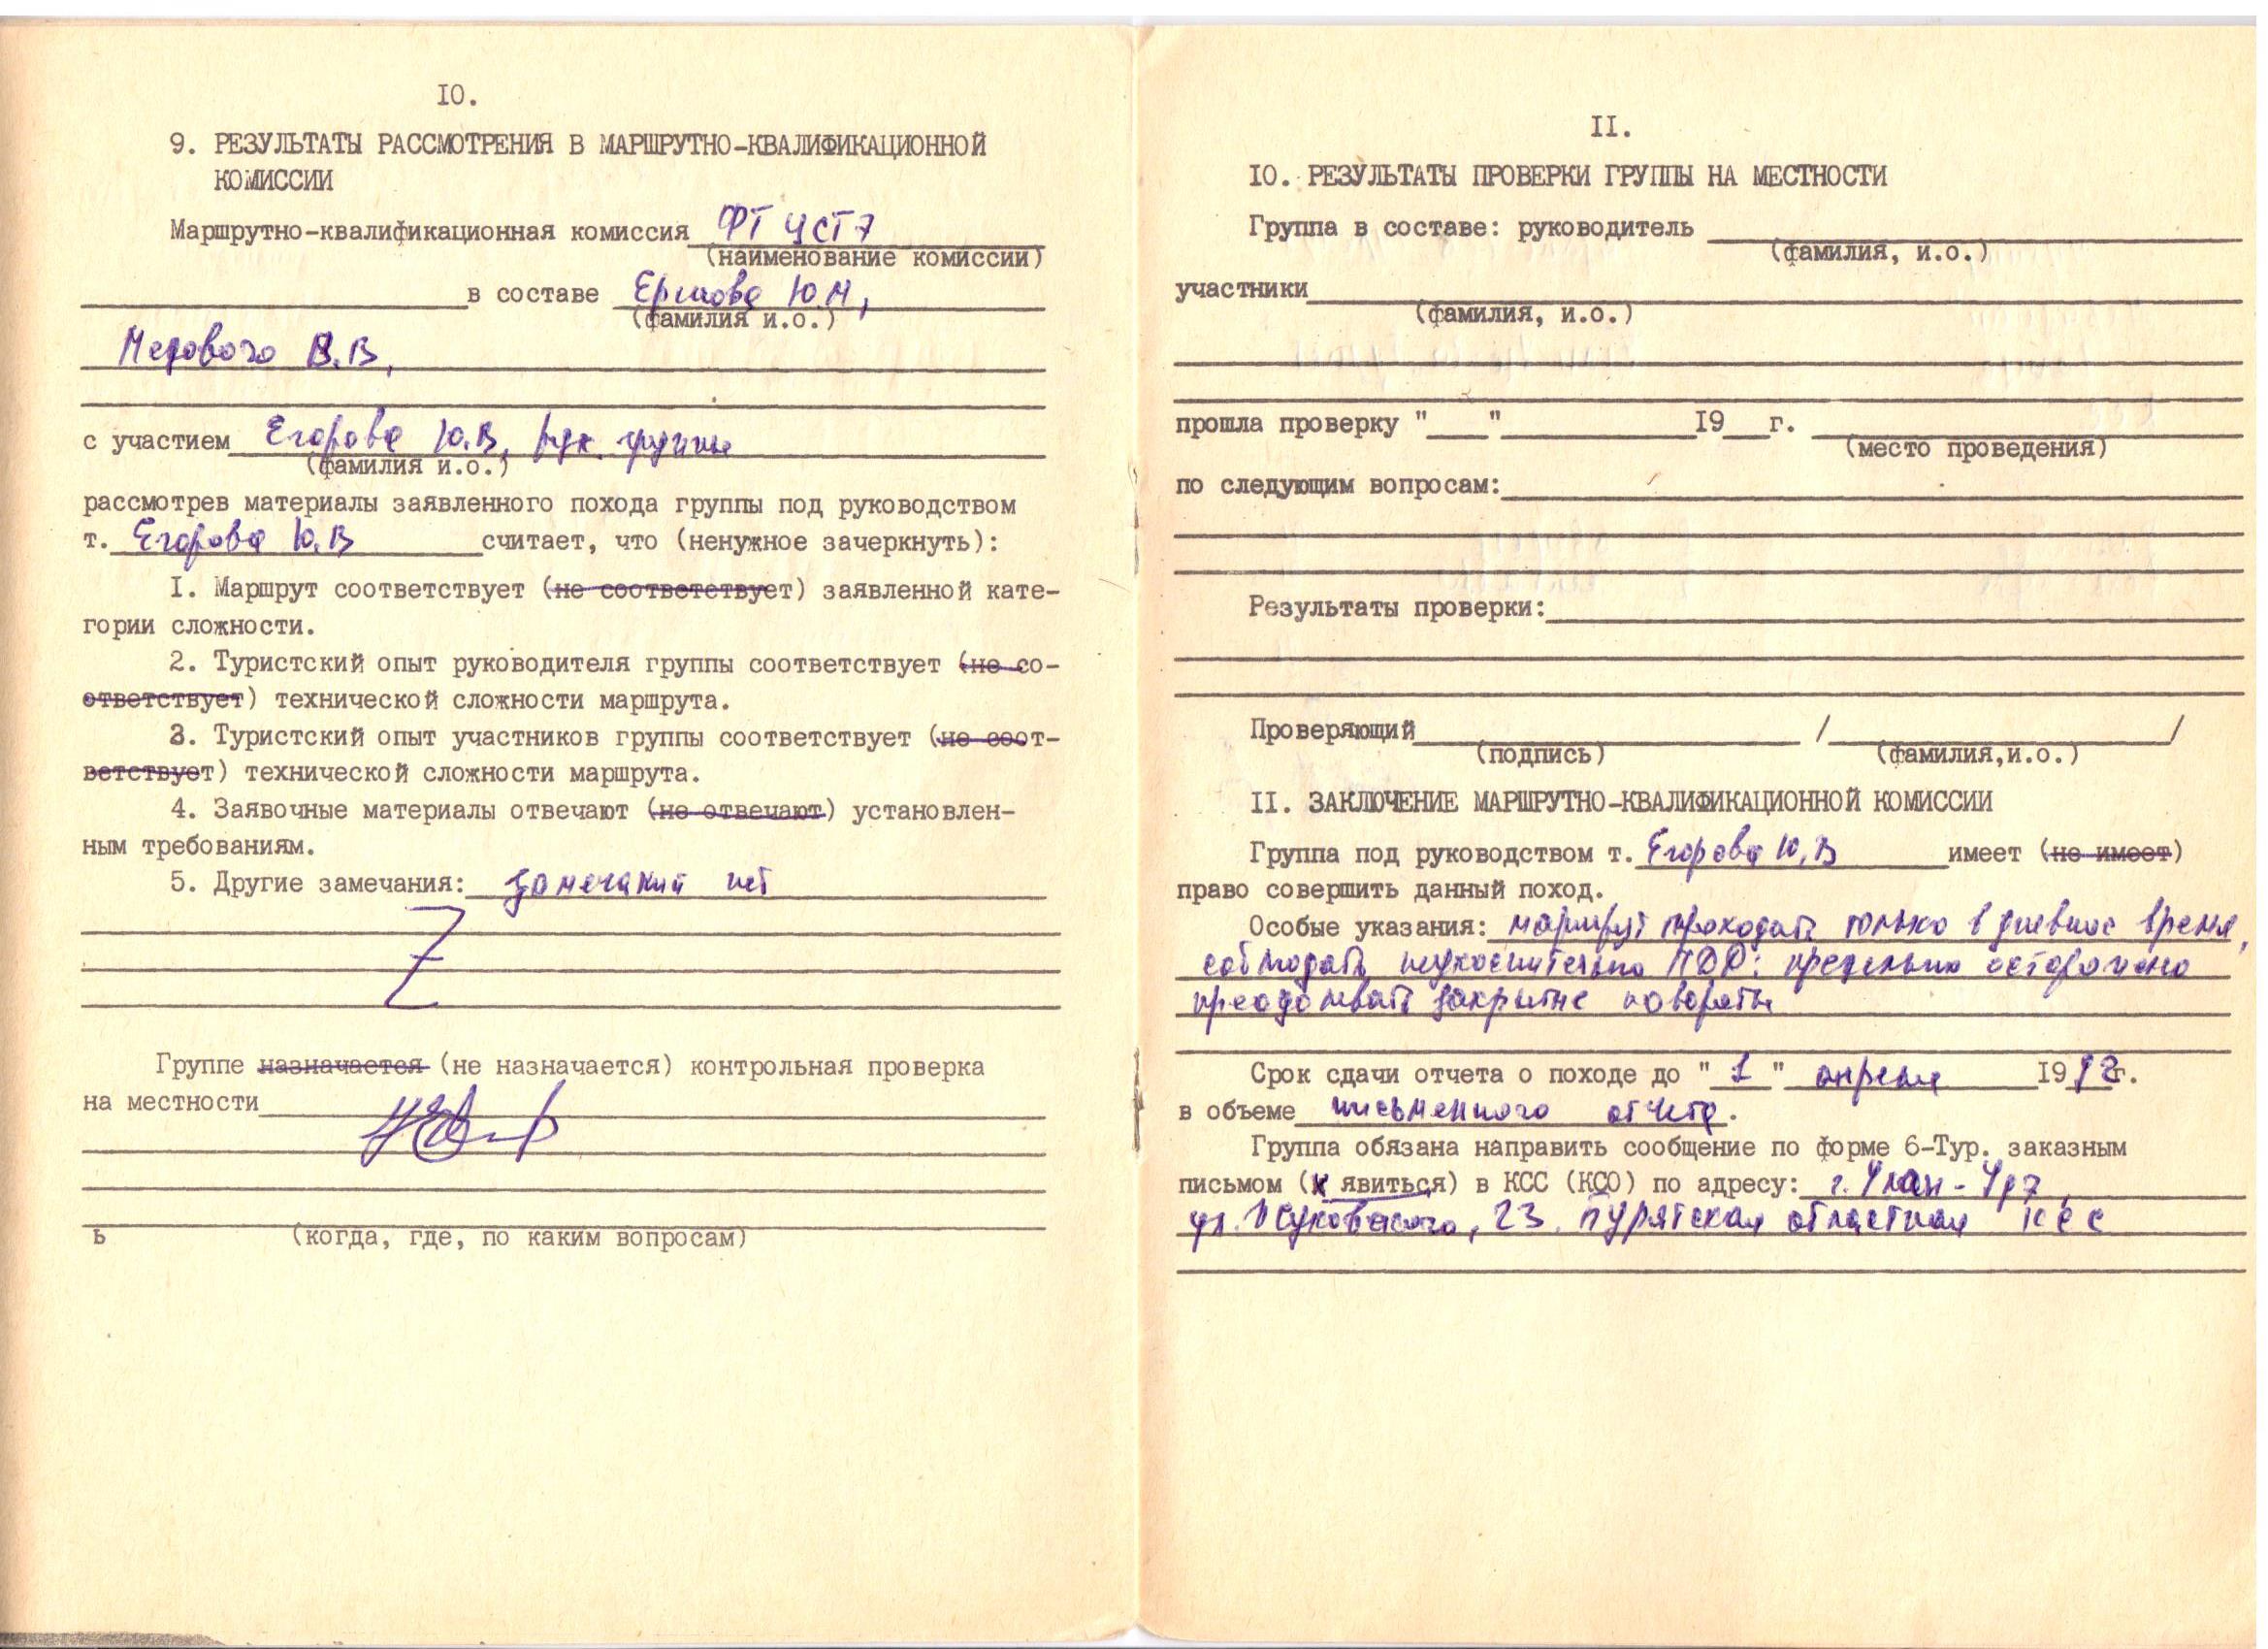 10.
9. РЕЗУЛЬТАТЫ РАССМОТРЕНИЯ В МАРШРУТНО-КВАЛИФИКАЦИОННОЙ
КОМИССИИ
Маршрутно-квалификационная комиссия ФТ
(наименование комиссии)
в составе Ершова Ю.М,
(фамилия и.о.)
Медового В.В,
с участием Егорова Ю.В, рук. группы
(фамилия и.о.)
рассмотрев материалы заявленного похода группы под руководством
т. Егорова Ю.В считает, что (ненужное зачеркнуть):
1. Маршрут соответствует (не соответствует) заявленной кате-
гории сложности.
2. Туристский опыт руководителя группы соответствует (не со-
ответствует) технической сложности маршрута.
3. Туристский опыт участников группы соответствует (не соот-
ветствует) технической сложности маршрута.
4. Заявочные материалы отвечают (не отвечают) установлен-
ным требованиям.
5. Другие замечания: замечаний нет
Группе назначается (не назначается) контрольная проверка
на местности
ь (когда, где, по каким вопросам)
11.
10. РЕЗУЛЬТАТЫ ПРОВЕРКИ ГРУППЫ НА МЕСТНОСТИ
Группа в составе: руководитель
(фамилия, и.о.)
участники
(фамилия, и.о.)
прошла проверку " " 19 г.
(место проведения)
по следующим вопросам:
Результаты проверки:
Проверяющий / /
(подпись) (фамилия,и.о.)
11. ЗАКЛЮЧЕНИЕ МАРШРУТНО-КВАЛИФИКАЦИОННОЙ КОМИССИИ
Группа под руководством т. Егорова Ю,В имеет (не имеет)
право совершить данный поход.
Особые указания: маршрут проходить только в дневное время,
соблюдать неукоснительно ПДД; предельно осторожно
преодолевать закрытые повороты
Срок сдачи отчета о походе до "1" апреля 1992г.
в объеме письменного отчета.
Группа обязана направить сообщение по форме 6-Тур. заказным
письмом (и явиться) в КСС (КСО) по адресу: г. Улан-Удэ,
ул. 23. Бурятская областная КСС